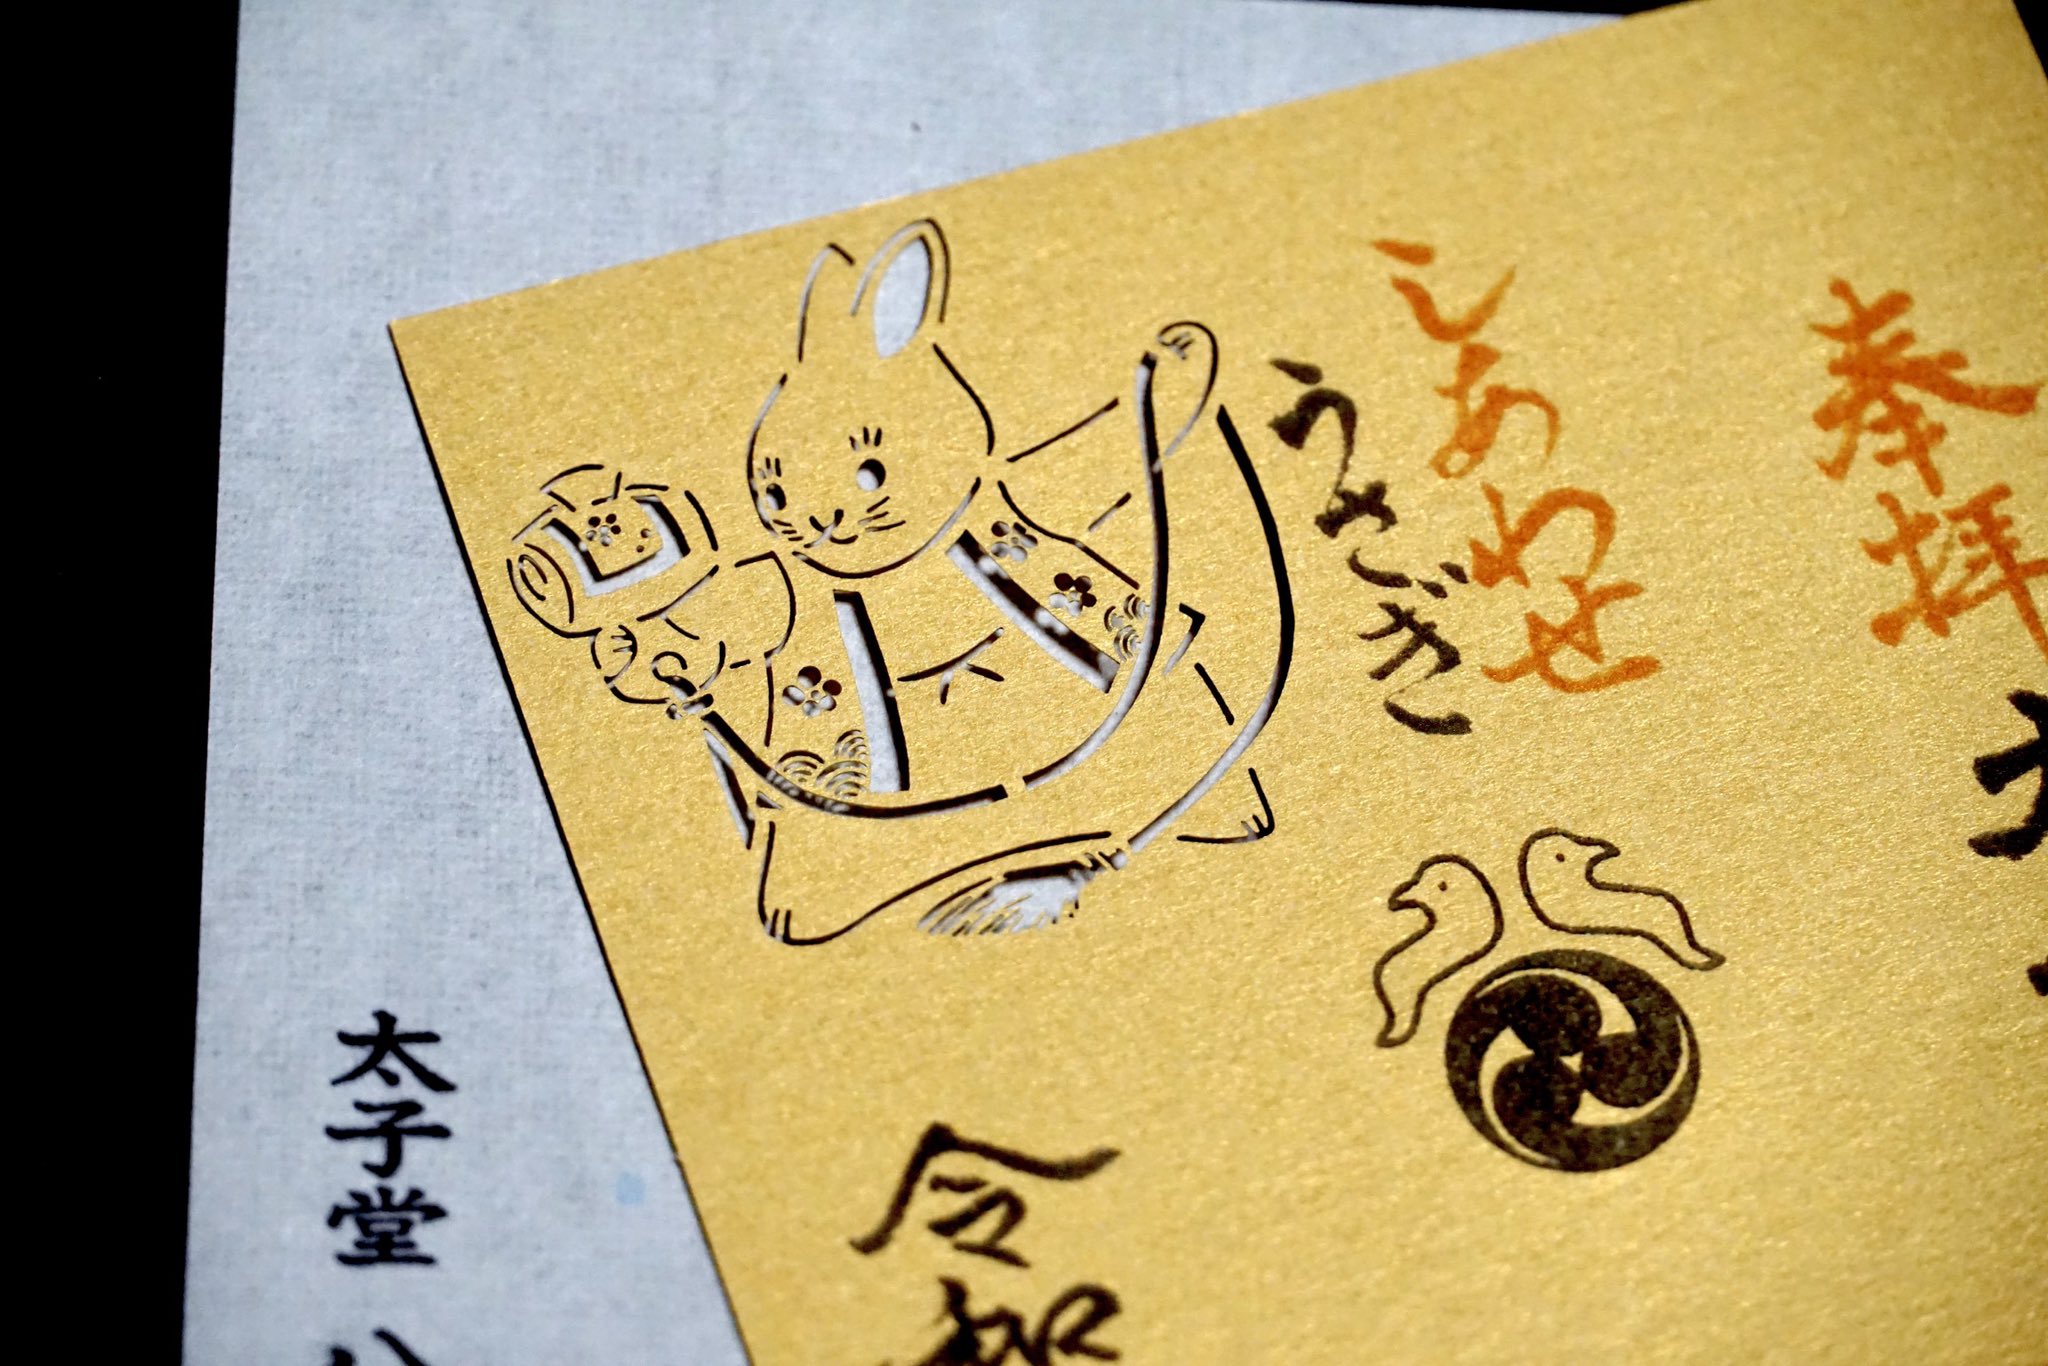 奉拝
しあわせ
うさぎ
令和
太子堂 八